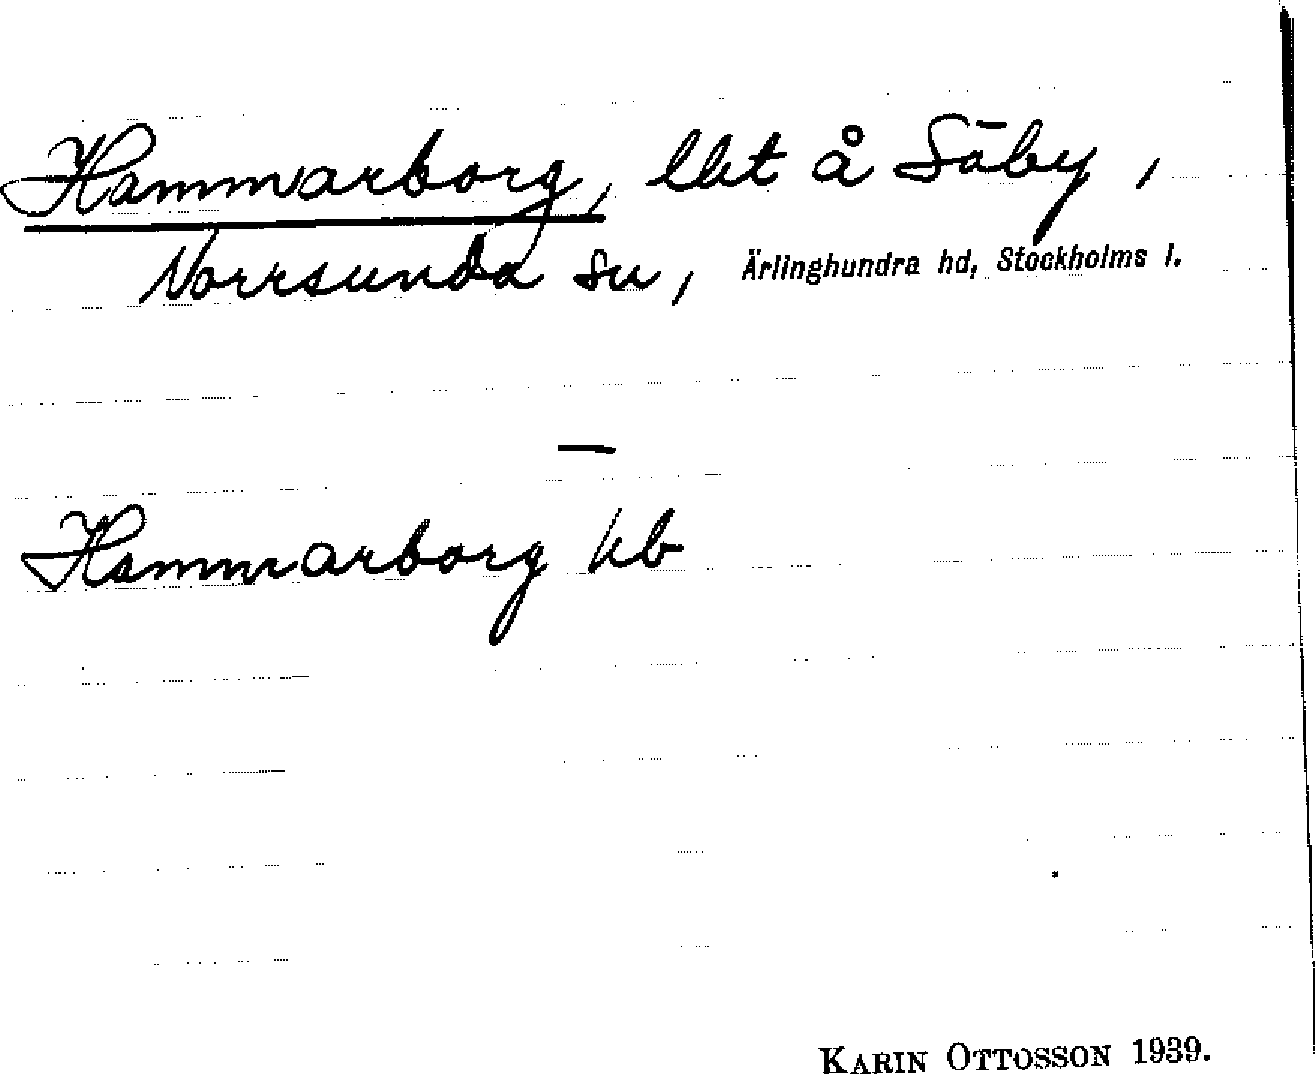 Hammarborg, lht å Säby,
Norrsunda sn, Ärlinghundra hd, Stockholms l.
—
Hammarborg kb
KARIN OTTOSSON 1939.